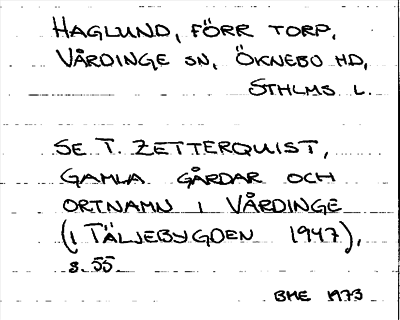 HAGLUND, FÖRR TORP,
VÅRDINGE SN, ÖKNEBO HD,
STHLMS L.
SE T. ZETTERQUIST,
GAMLA GÅRDAR OCH
ORTNAMN I VÅRDINGE
(I TÄLJEBYGDEN 1947),
s. 55
BME 1973